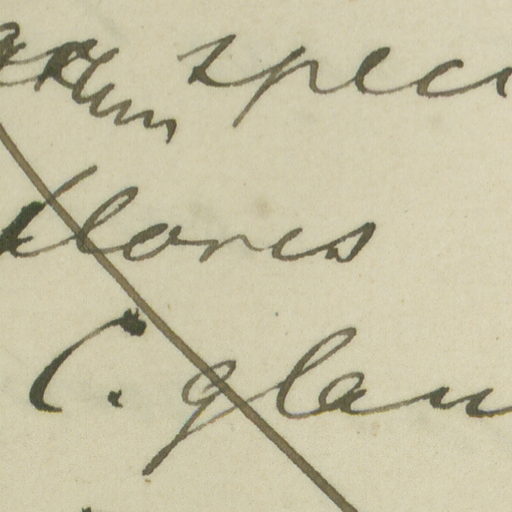 speci
flores
C. glau